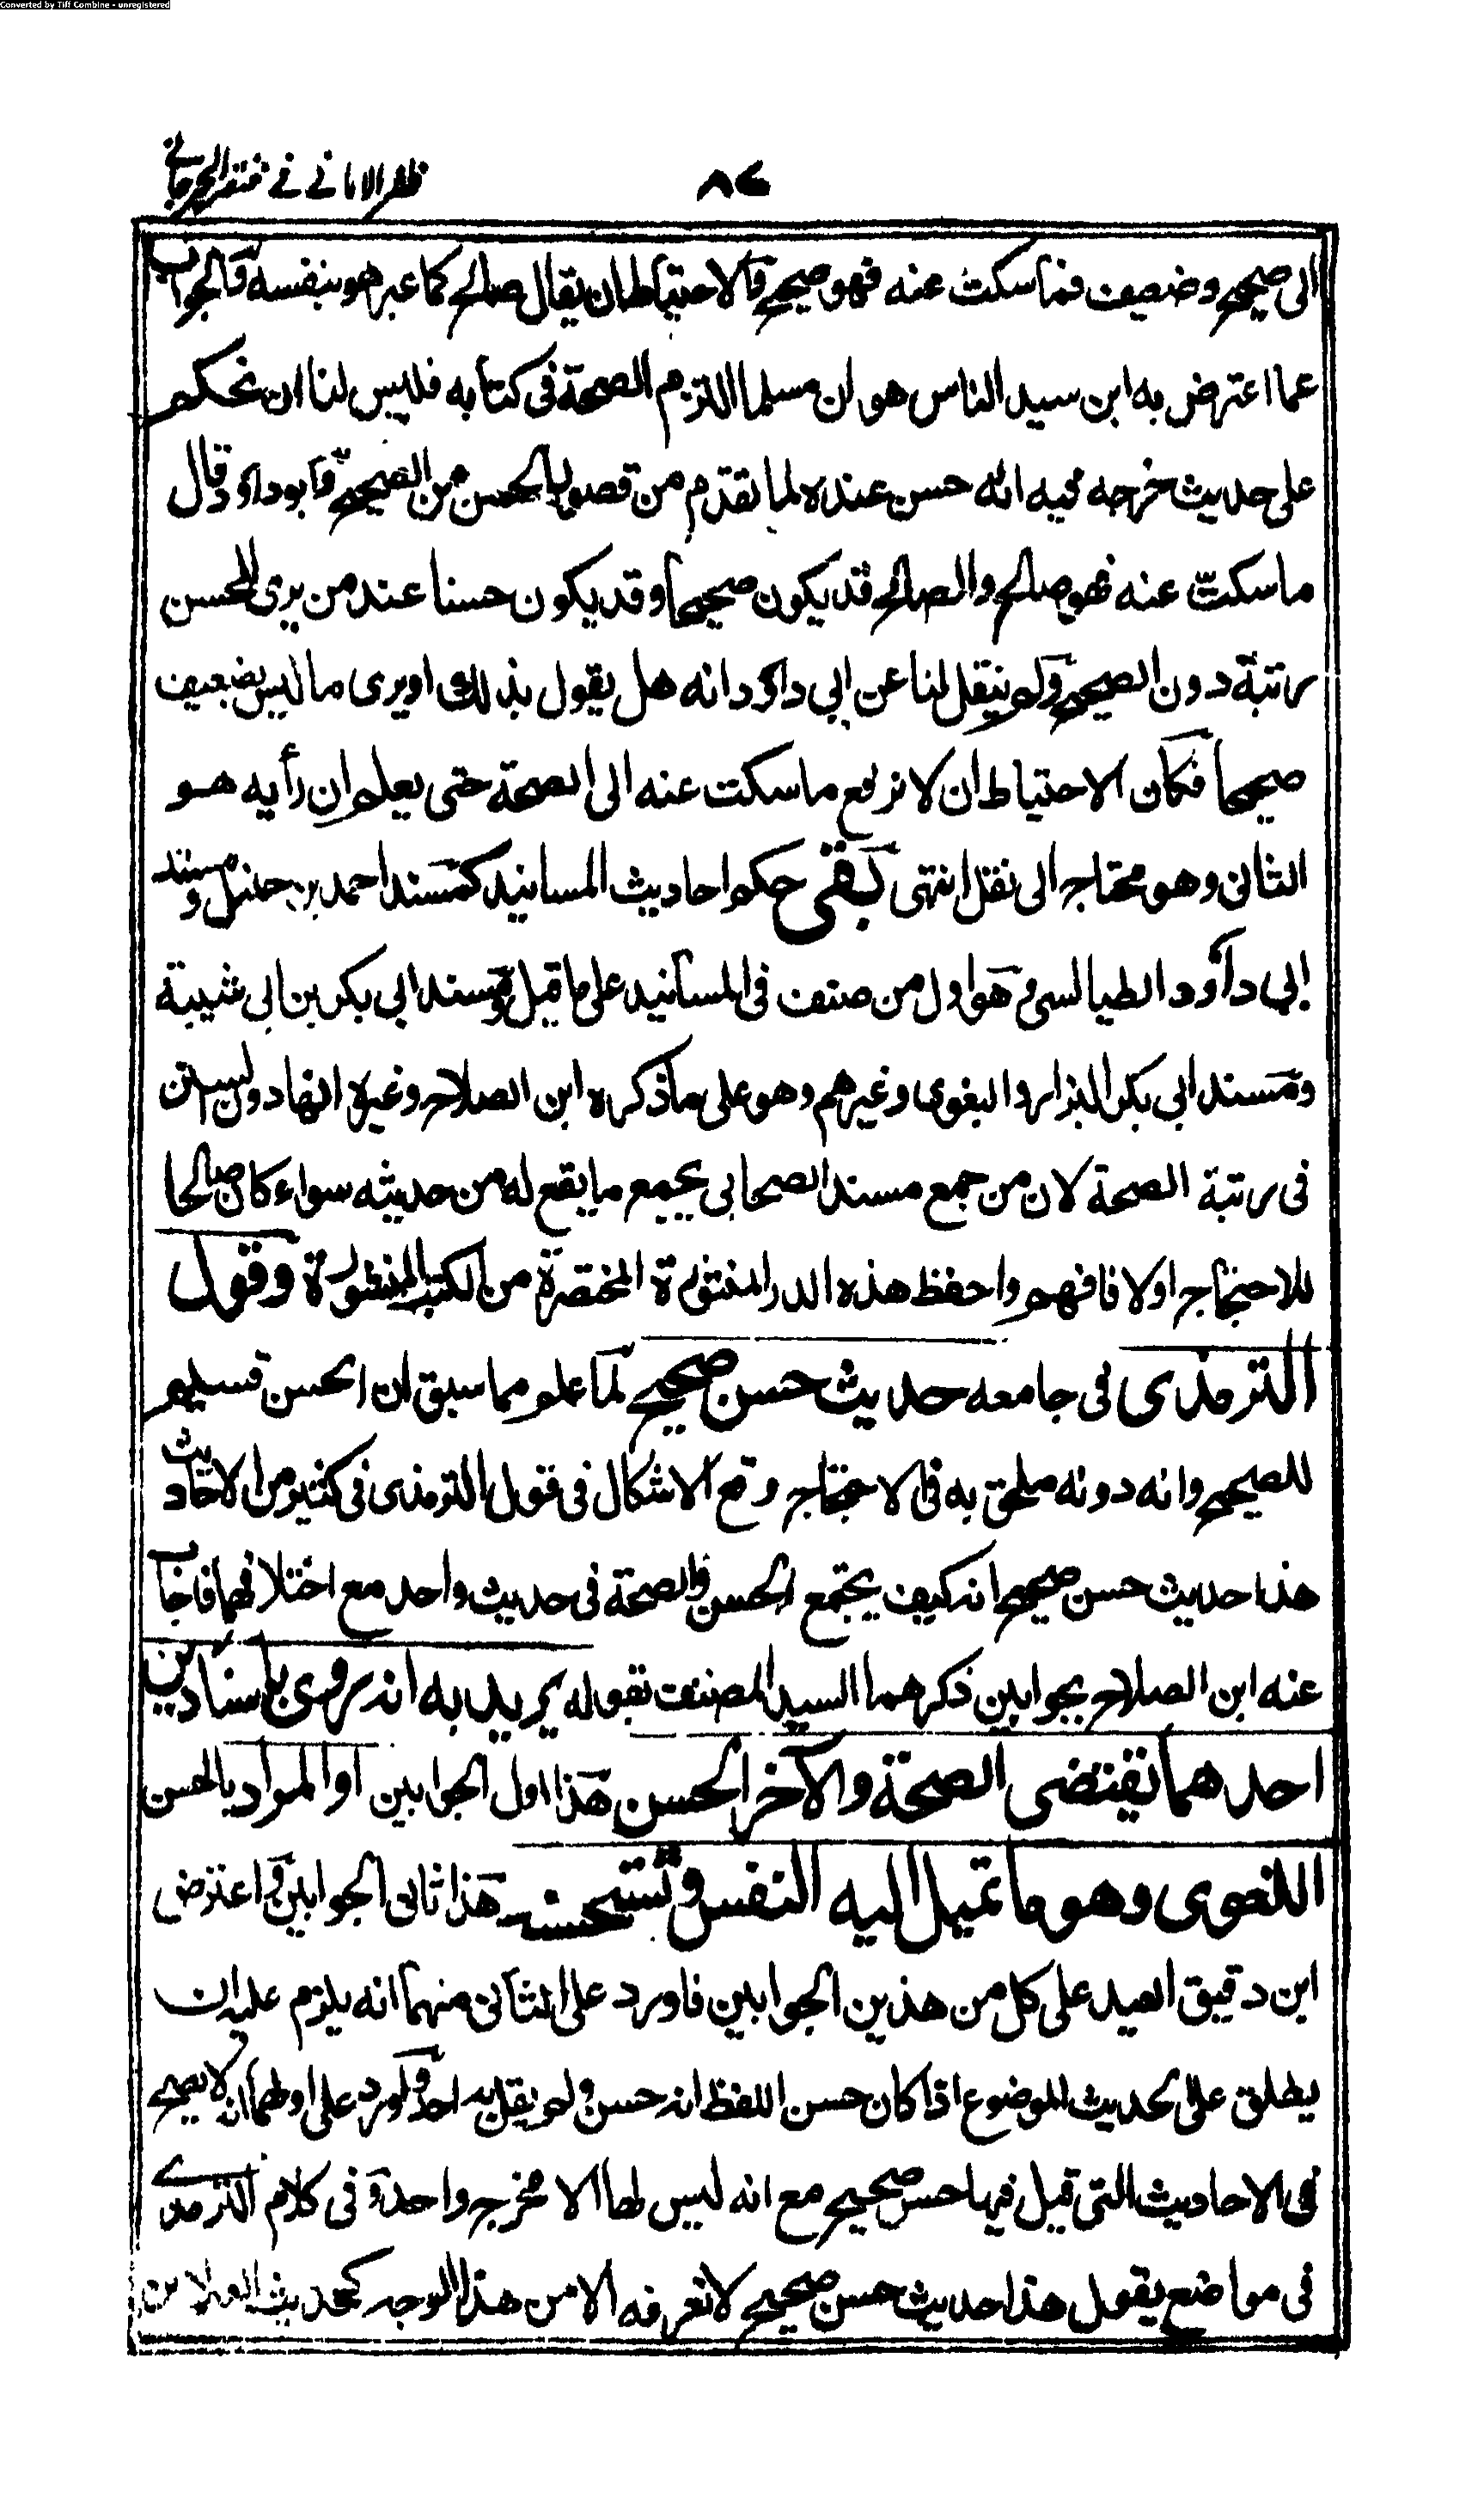 Converted by Tiff Combine - unregistered
ظفر الاماني في مختصر الجرجاني
٨٧
الى صحيح وضعيف فما سكت عنه فهو صحيح والاحتياط ان يقال صالح كما عبر هو بنفسه والجواب
عما اعترض به ابن سيد الناس هو ان مسلما التزم الصحة في كتابه فليس لنا ان نحكم
على حديث خرجه فيه انه حسن عنده لما تقدم من قصور الحسن من الصحيح وابو داؤد قال
ما سكت عنه فهو صالح والصالح قد يكون صحيحا وقد يكون حسنا عند من يرى الحسن
رتبة دون الصحيح ولم ينقل لنا عن ابي داؤد انه هل يقول بذلك او يرى ما ليس بضعيف
صحيحا فكان الاحتياط ان لا نرفع ما سكت عنه الى الصحة حتى يعلم ان رأيه هو
الثاني وهو محتاج الى نقل انتهى بقي حكم احاديث المسانيد كمسند احمد بن حنبل ومسند
ابي داؤد الطيالسي وهو اول من صنف في المسانيد على ما قيل ومسند ابي بكر بن ابي شيبة
ومسند ابي بكر البزار والبغوى وغيرهم وهو على ما ذكره ابن الصلاح وغيره انها دون السنن
فى رتبة الصحة لان من جمع مسند الصحابى يجمع ما يقع له من حديثه سواء كان صالحا
للاحتجاج اولا فافهم واحفظ هذه الدرر المنثورة المختصرة من الكتب المنظورة وقول
الترمذى فى جامعه حديث حسن صحيح لما علم مما سبق ان الحسن قسيم
للصحيح وانه دونه ملحق به فى الاحتجاج وقع الاشكال فى قول الترمذى فى كثير من الاحاديث
هذا حديث حسن صحيح انه كيف يجتمع الحسن والصحة فى حديث واحد مع اختلافهما فاجاب
عنه ابن الصلاح بجوابين ذكرهما السيد المصنف بقوله يريد به انه روى باسنادين
احدهما يقتضى الصحة والآخر الحسن هذا اول الجوابين او المراد بالحسن
اللغوى وهو ما تميل اليه النفس وتستحسنه هذا ثانى الجوابين واعترض
ابن دقيق العيد على كل من هذين الجوابين فاورد على الثانى منهما انه يلزم عليه ان
يطلق على الحديث الموضوع اذا كان حسن اللفظ انه حسن ولم يقل به احد واورد على اولهما انه لا يصح
فى الاحاديث التى قيل فيها حسن صحيح مع انه ليس لها الا مخرج واحد وفى كلام الترمذى
فى مواضع يقول هذا حديث حسن صحيح لا نعرفه الا من هذا الوجه كحديث العلاء بن